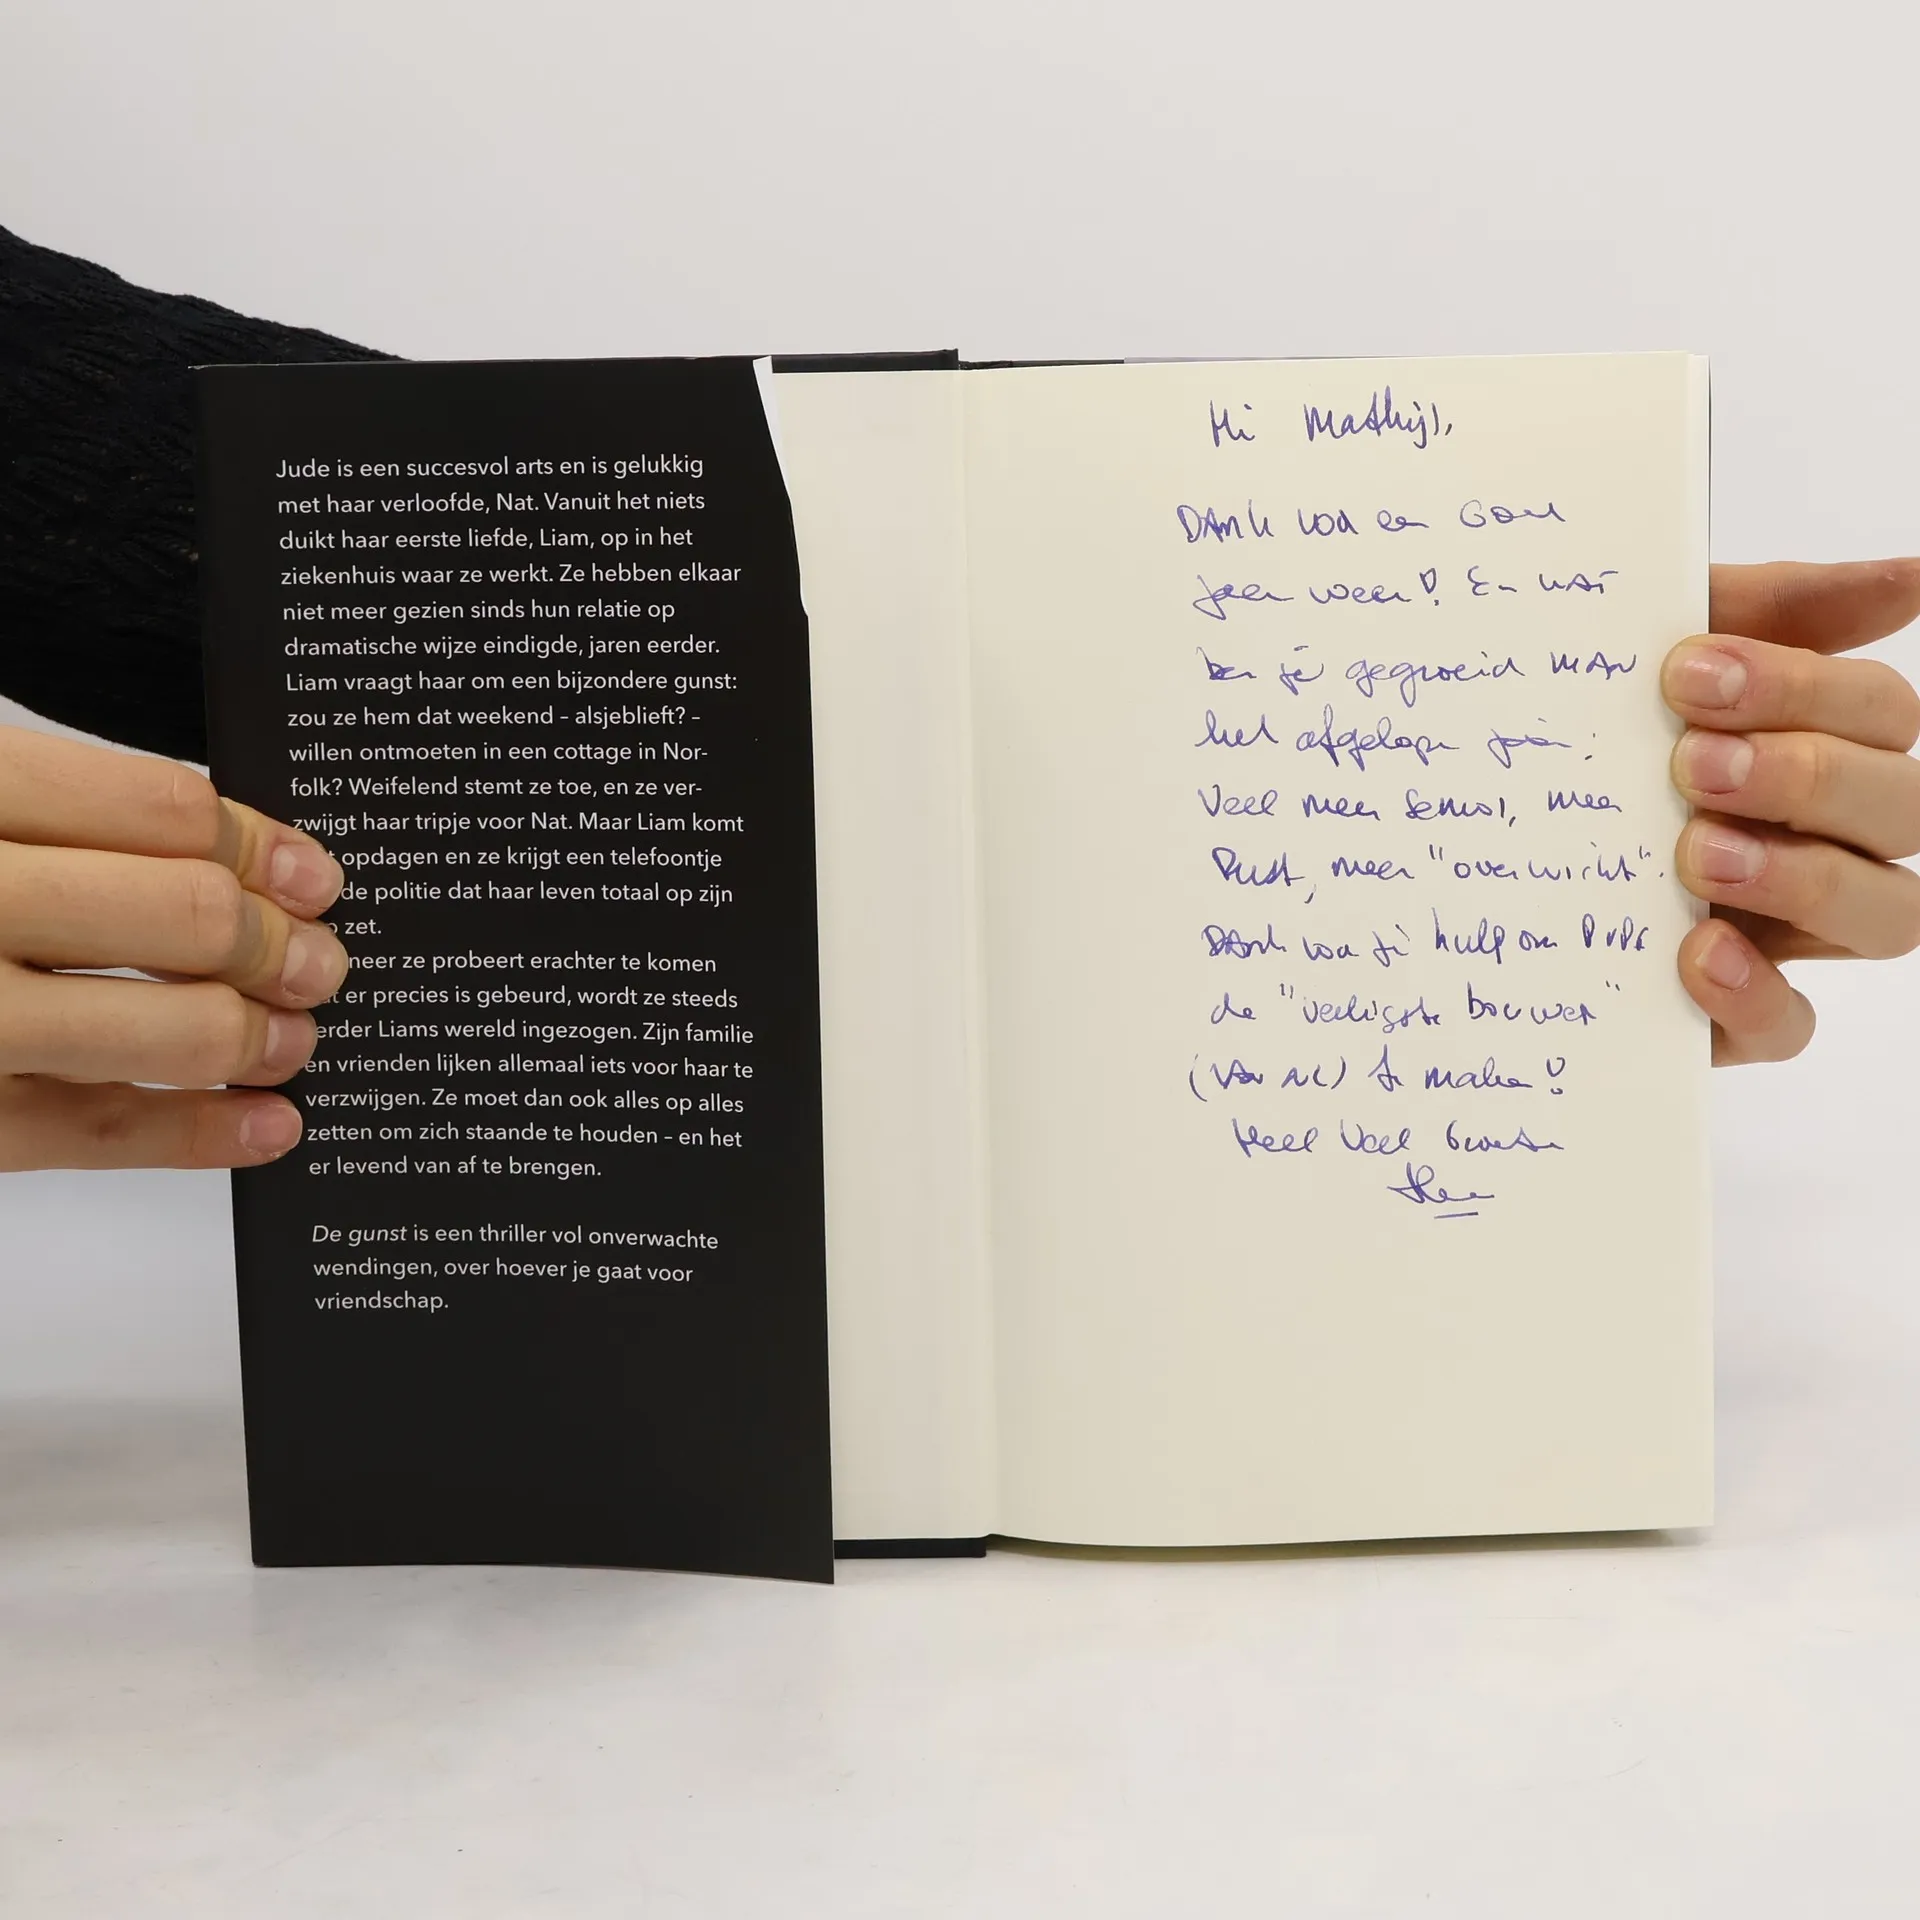 Jude is een succesvol arts en is gelukkig
met haar verloofde, Nat. Vanuit het niets
duikt haar eerste liefde, Liam, op in het
ziekenhuis waar ze werkt. Ze hebben elkaar
niet meer gezien sinds hun relatie op
dramatische wijze eindigde, jaren eerder.
Liam vraagt haar om een bijzondere gunst:
zou ze hem dat weekend – alsjeblieft? –
willen ontmoeten in een cottage in Nor-
folk? Weifelend stemt ze toe, en ze ver-
zwijgt haar tripje voor Nat. Maar Liam komt
opdagen en ze krijgt een telefoontje
de politie dat haar leven totaal op zijn
zet.
neer ze probeert erachter te komen
er precies is gebeurd, wordt ze steeds
erder Liams wereld ingezogen. Zijn familie
en vrienden lijken allemaal iets voor haar te
verzwijgen. Ze moet dan ook alles op alles
zetten om zich staande te houden – en het
er levend van af te brengen.
De gunst is een thriller vol onverwachte
wendingen, over hoever je gaat voor
vriendschap.
Hi Mathijs,
Dank voor een Goed
jaar weer! En wat
ben je gegroeid
het afgelopen jaar:
Veel meer senior, meer
Rust, meer "overwicht".
Dank voor je hulp om
de "veiligste bouwer"
(van NL) te maken!
Heel Veel Groeten